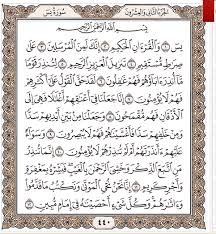 الجزء الثاني والعشرون سورة يس
بِسْمِ ٱللَّهِ ٱلرَّحْمَٰنِ ٱلرَّحِيمِ
يسٓ ١ وَٱلْقُرْءَانِ ٱلْحَكِيمِ ٢ إِنَّكَ لَمِنَ ٱلْمُرْسَلِينَ ٣ عَلَىٰ
صِرَٰطٍ مُّسْتَقِيمٍ ٤ تَنزِيلَ ٱلْعَزِيزِ ٱلرَّحِيمِ ٥ لِتُنذِرَ قَوْمًا
مَّآ أُنذِرَ ءَابَآؤُهُمْ فَهُمْ غَٰفِلُونَ ٦ لَقَدْ حَقَّ ٱلْقَوْلُ عَلَىٰٓ أَكْثَرِهِمْ
فَهُمْ لَا يُؤْمِنُونَ ٧ إِنَّا جَعَلْنَا فِىٓ أَعْنَٰقِهِمْ أَغْلَٰلًا فَهِىَ إِلَى
ٱلْأَذْقَانِ فَهُم مُّقْمَحُونَ ٨ وَجَعَلْنَا مِنۢ بَيْنِ أَيْدِيهِمْ سَدًّا
وَمِنْ خَلْفِهِمْ سَدًّا فَأَغْشَيْنَٰهُمْ فَهُمْ لَا يُبْصِرُونَ ٩ وَسَوَآءٌ
عَلَيْهِمْ ءَأَنذَرْتَهُمْ أَمْ لَمْ تُنذِرْهُمْ لَا يُؤْمِنُونَ ١٠ إِنَّمَا تُنذِرُ
مَنِ ٱتَّبَعَ ٱلذِّكْرَ وَخَشِىَ ٱلرَّحْمَٰنَ بِٱلْغَيْبِ فَبَشِّرْهُ بِمَغْفِرَةٍ
وَأَجْرٍ كَرِيمٍ ١١ إِنَّا نَحْنُ نُحْىِ ٱلْمَوْتَىٰ وَنَكْتُبُ مَا قَدَّمُوا۟
وَءَاثَٰرَهُمْ وَكُلَّ شَىْءٍ أَحْصَيْنَٰهُ فِىٓ إِمَامٍ مُّبِينٍ ١٢
٤٤٠